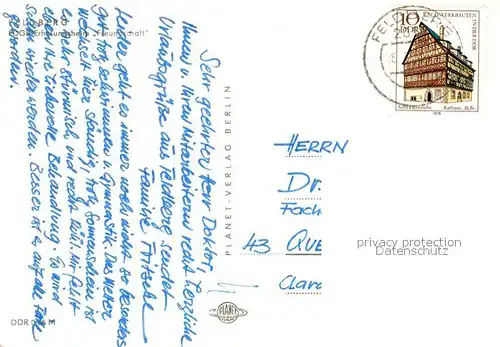 FELDBERG
FDGB-Erholungsheim „Freundschaft"
Sehr geehrter Herr Doktor!
Ihnen u. Ihren Mitarbeitern recht herzliche
Urlaubsgrüße aus Feldberg sendet
Familie Fritsche
Leider geht es immer noch nicht so besonders
gut, trotz schwimmen u. Gymnastik. Das Wetter
wechselt hier ständig, trotz Sonnenschein ist
es sehr stürmisch, und recht kühl. Mir fehlt
eben Ihre liebevolle Behandlung. Es wird
schon wieder werden. Besser ist es auf alle Fälle
geworden.
DDR M
PLANET-VERLAG BERLIN
PLANET
FELDBERG
10
DDR
FACHWERKBAUTEN
IN DER DDR
Rathaus, 16. Jh.
1978
HERRN
Dr.
Fach
43 QUE
Clara
privacy protection
Datenschutz